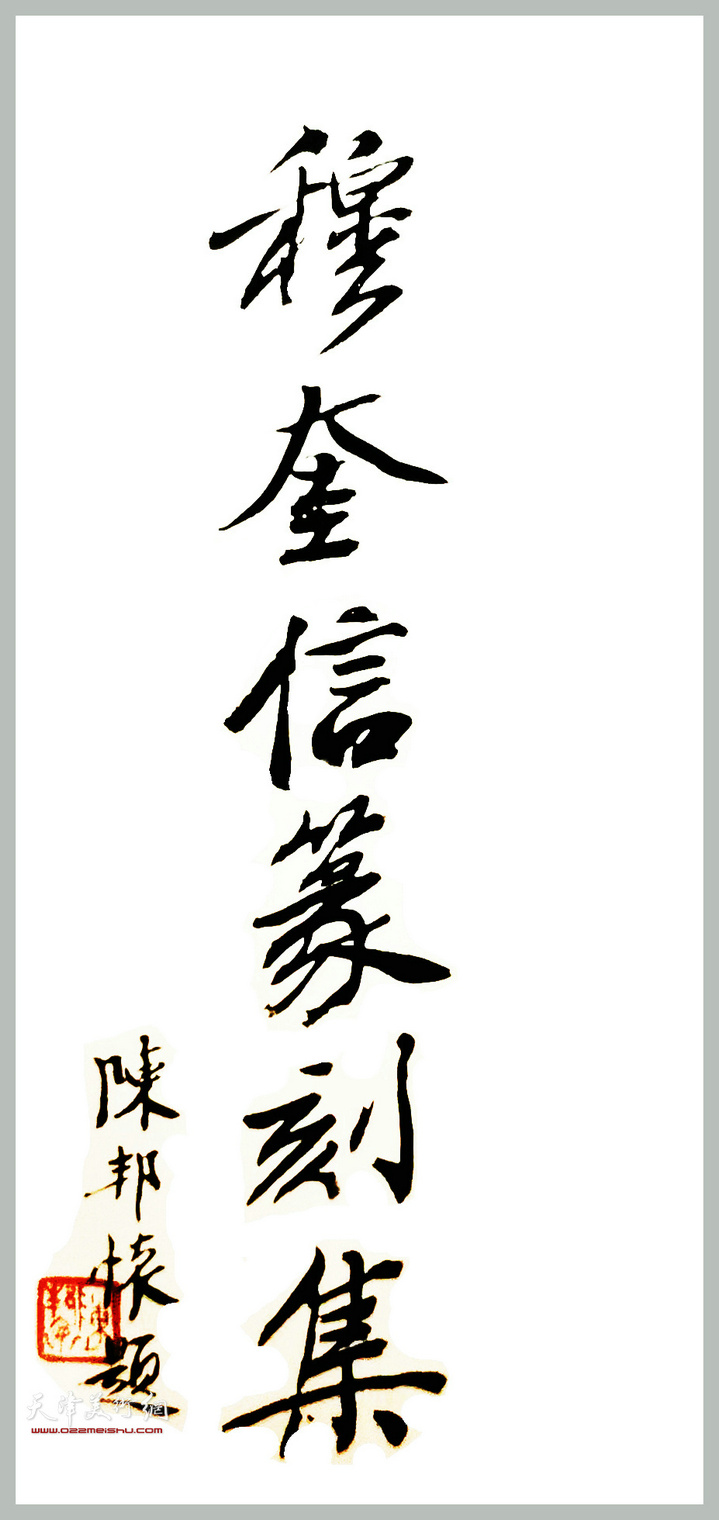 穆奎信篆刻集
陳邦懷題
天津美術網
www.022meishu.com